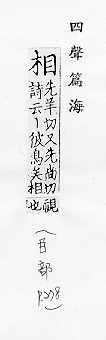 四聲篇海
相先羊切又先尚切視
詩云丨彼鳥矣相也
(目部
P.278)